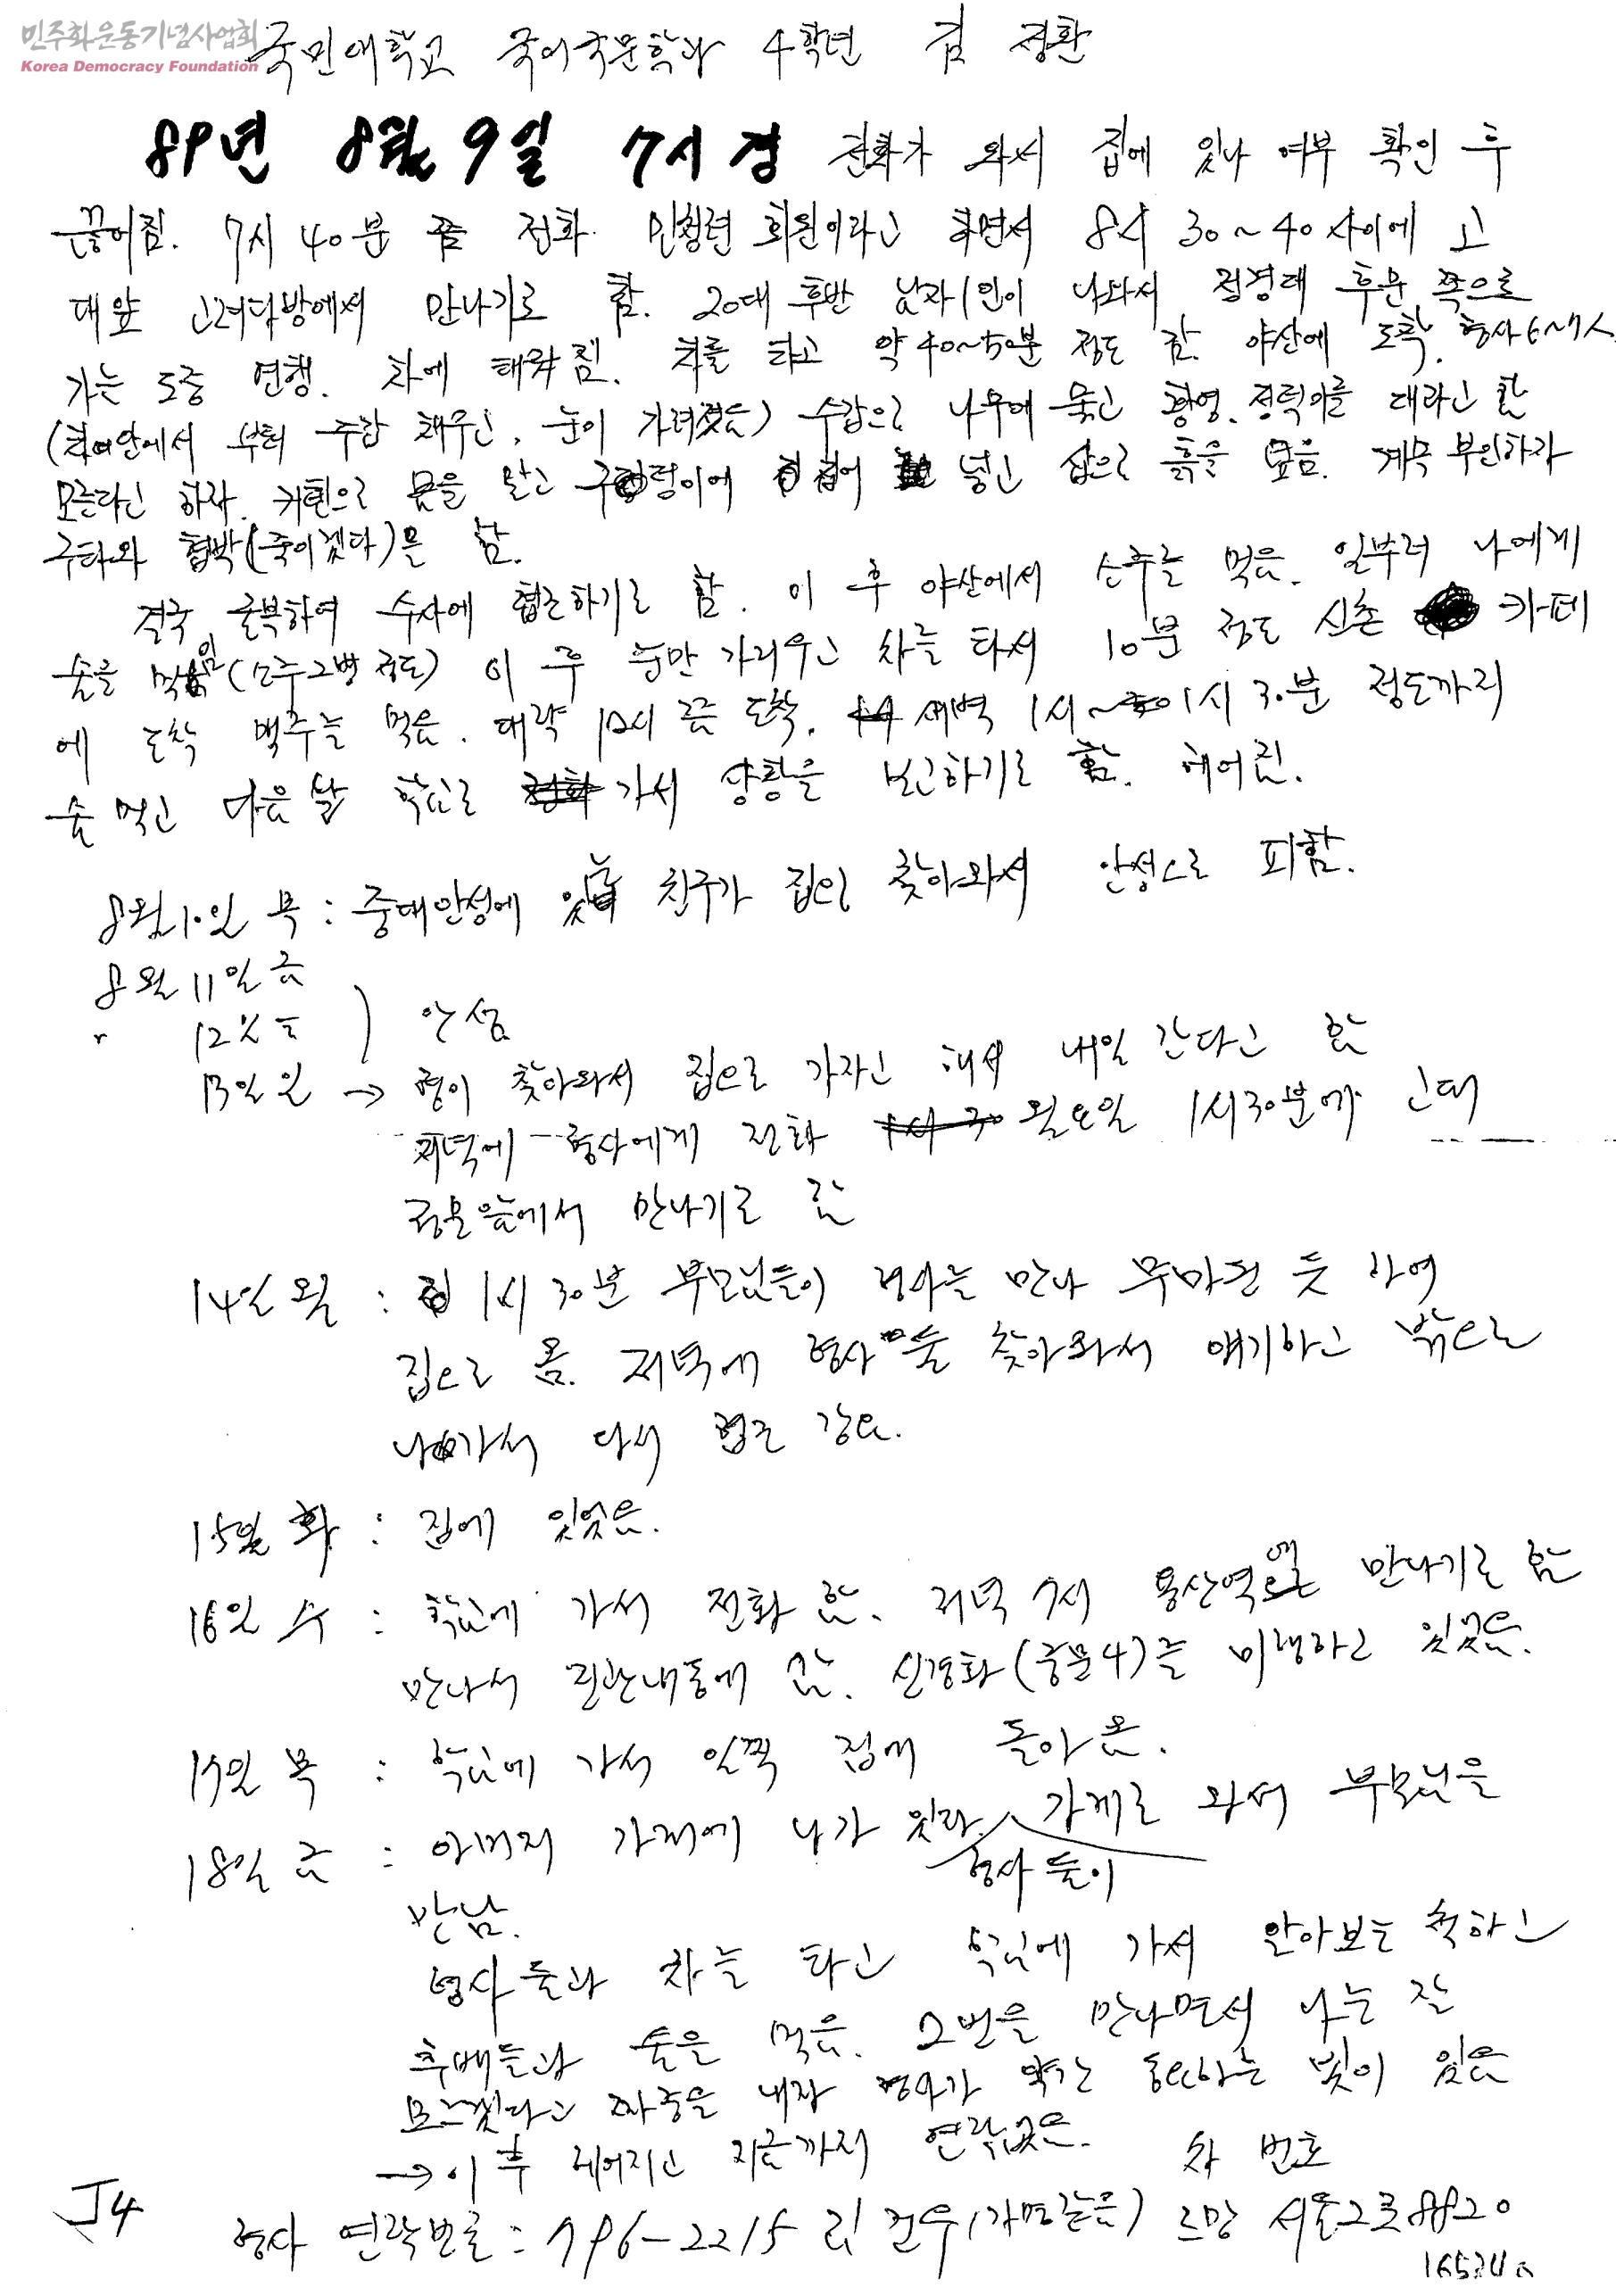 민주화운동기념사업회
Korea Democracy Foundation
국민대학교 국어국문학과 4학년 김 정환
89년 8월 9일 7시경 전화가 와서 집에 있나 여부 확인 후
끊어짐. 7시 40분 쯤 전화 민청련 회원이라고 하면서 8시 30~40 사이에 고
대앞 고려다방에서 만나기로 함. 20대 후반 남자1인이 나와서 정경대 후문 쪽으로
가는 도중 연행. 차에 태워짐. 차를 타고 약 40~50분 정도 감. 야산에 도착. 형사 6~7人
(차안에서 부터 수갑 채우고, 눈이 가려졌음) 수갑으로 나무에 묶고 대라고 함
모른다고 하자. 구덩이에 집어 넣고 삽으로 흙을 계속 부인하자
구타와 협박(죽이겠다)을 함.
결국 굴복하여 수사에 협조하기로 함. 이 후 야산에서 소주를 먹음. 일부러 나에게
술을 먹임(소주2병 정도) 이 후 눈만 가리우고 차를 타서 10분 정도 신촌 카페
에 도착 맥주를 먹음. 대략 쯤 도착. 새벽 1시~1시 30분 정도까지
술 먹고 다음날 학교로 가서 상황을 보고하기로 함. 헤어짐.
8월10일 목 : 중대안성에 있는 친구가 집으로 찾아와서 안성으로 피함.
8월 11일 금
〃 12일 토 ) 안성
13일 일 → 형이 찾아와서 집으로 가자고 해서 내일 간다고 함
저녁에 형사에게 전화 월요일 1시30분에 고대
정문앞에서 만나기로 함
14일 월 : 1시 30분 부모님들이 형사를 만나 무마된 듯 하여
집으로 옴. 저녁에 형사들 찾아와서 얘기하고 밖으로
나가서 다시 협조 강요.
15일 화 : 집에 있었음.
16일 수 : 학교에 가서 전화 함. 저녁 7시 용산역에서 만나기로 함
만나서 진관내동에 감. 신경화(중문4)를 미행하고 있었음.
17일 목 : 학교에 가서 일찍 집에 돌아 옴.
18일 금 : 아버지 가게에 나가 있다. 형사들이 가게로 와서 부모님을
만남.
형사들과 차를 타고 학교에 가서 알아보는 척하고
후배들과 술을 먹음. 2번을 만나면서 나는 잘
모르겠다고 짜증을 내자 형사가 약간 동요하는 빛이 있음
→ 이 후 헤어지고 지금까지 연락없음. 차 번호
J4
형사 연락번호 : 796-2215 건우(가명같음) 르망 서울2 8820